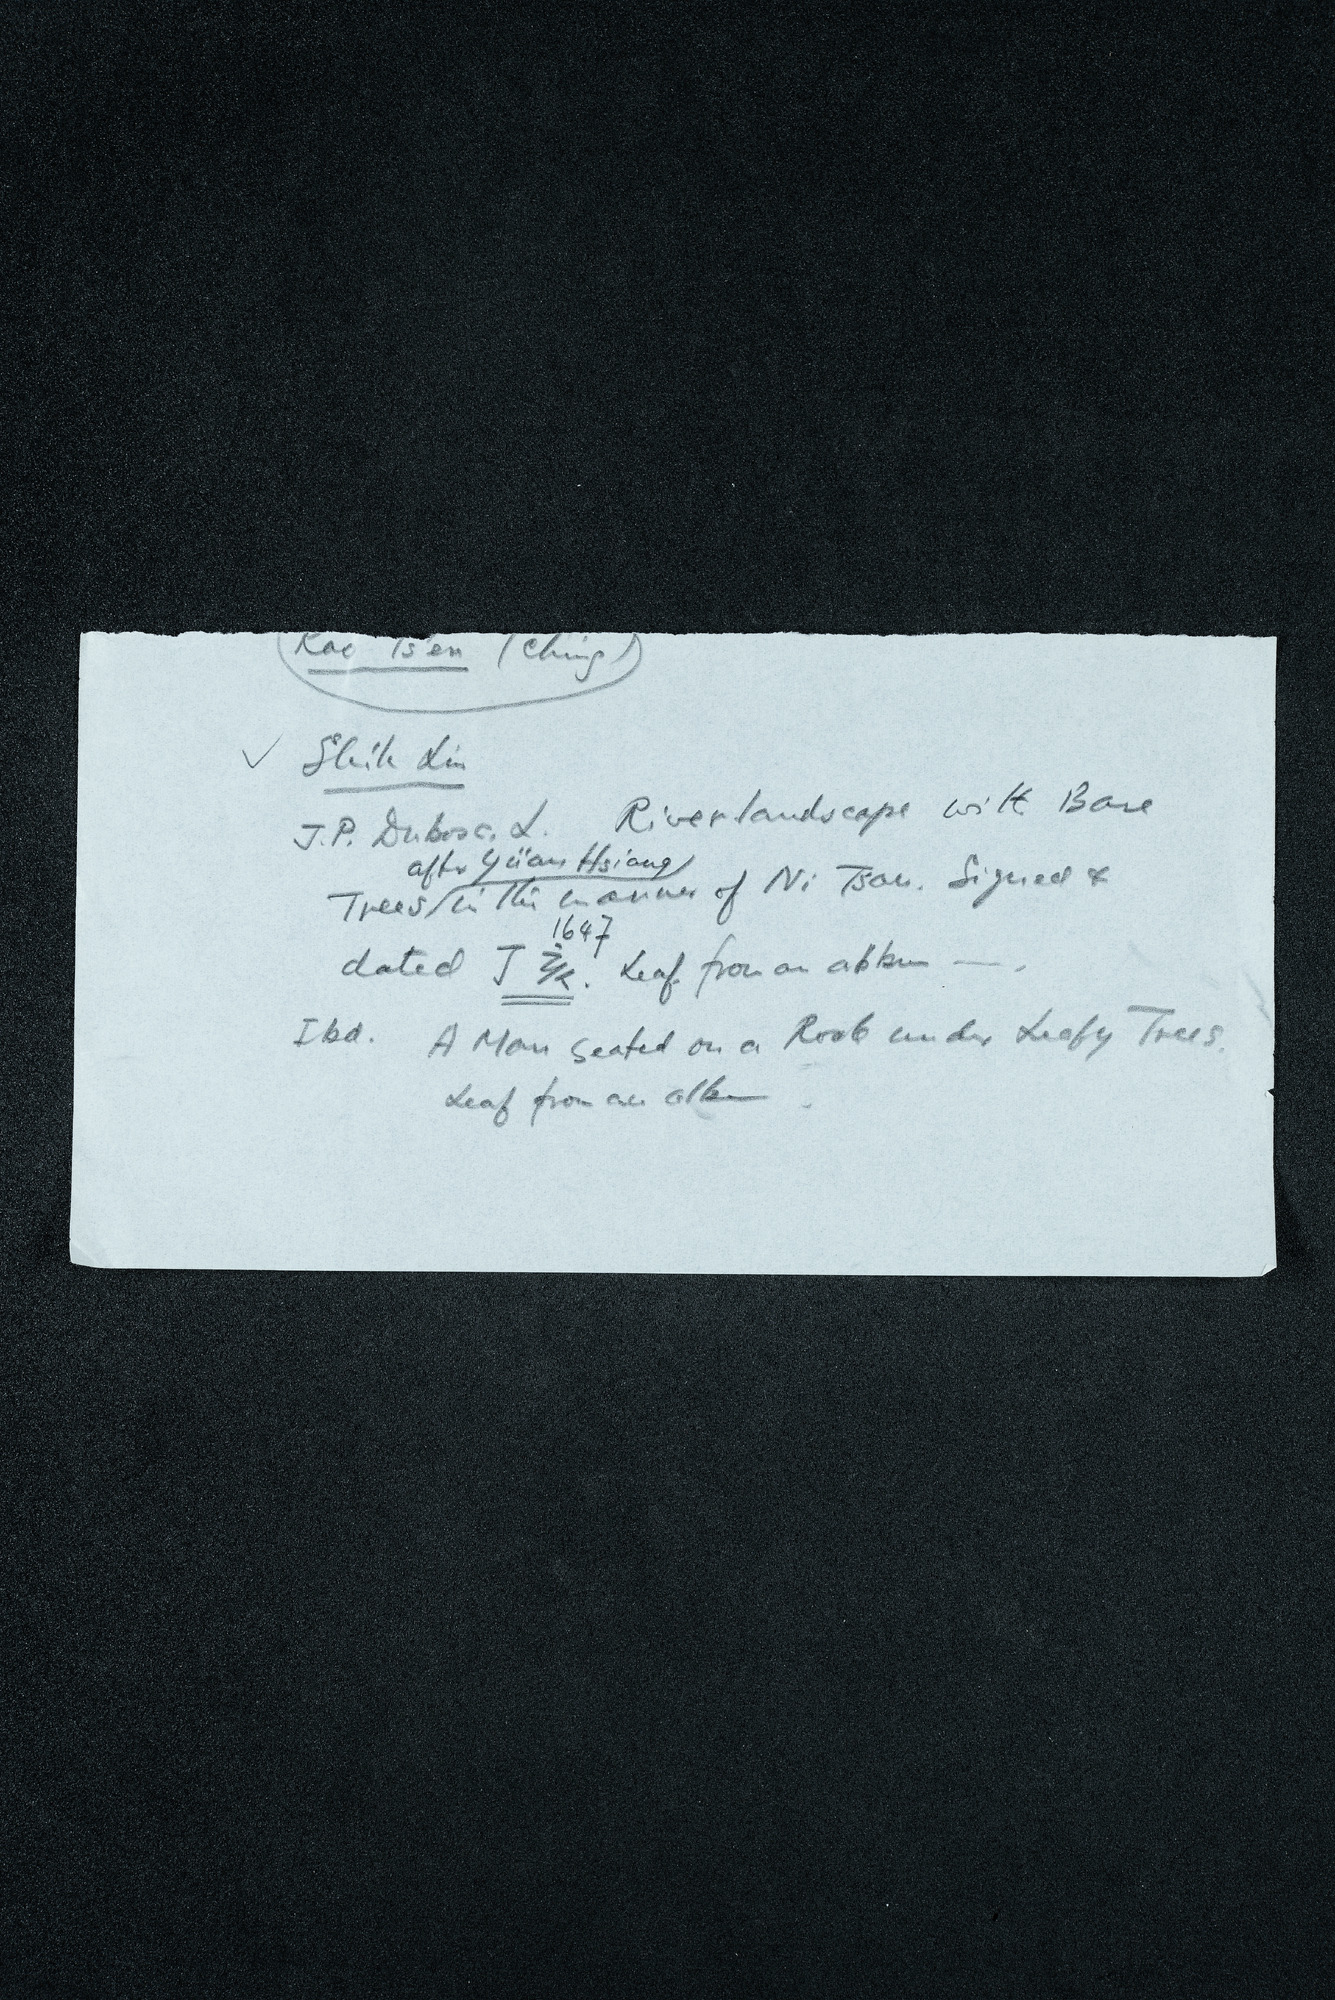 Kao Ts'en (Ching)
✓ Shih Lin
J.P. Dubosc. L. River landscape with Bare
after Yüan Hsiang
Trees/in the manner of Ni Tsan. Signed &
1647
dated 丁亥. Leaf from an album —.
Ibd. A Man seated on a Rock under Leafy Trees.
Leaf from an album.